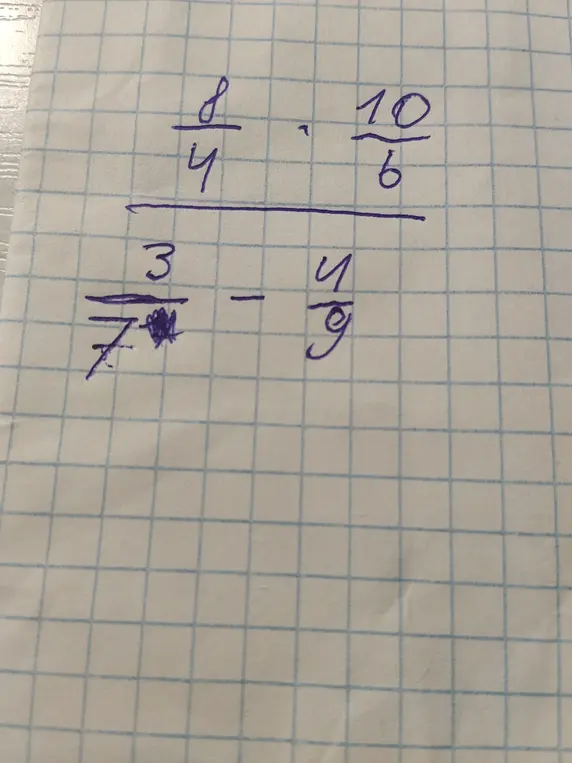 8/4 · 10/6
3/7 - 4/9